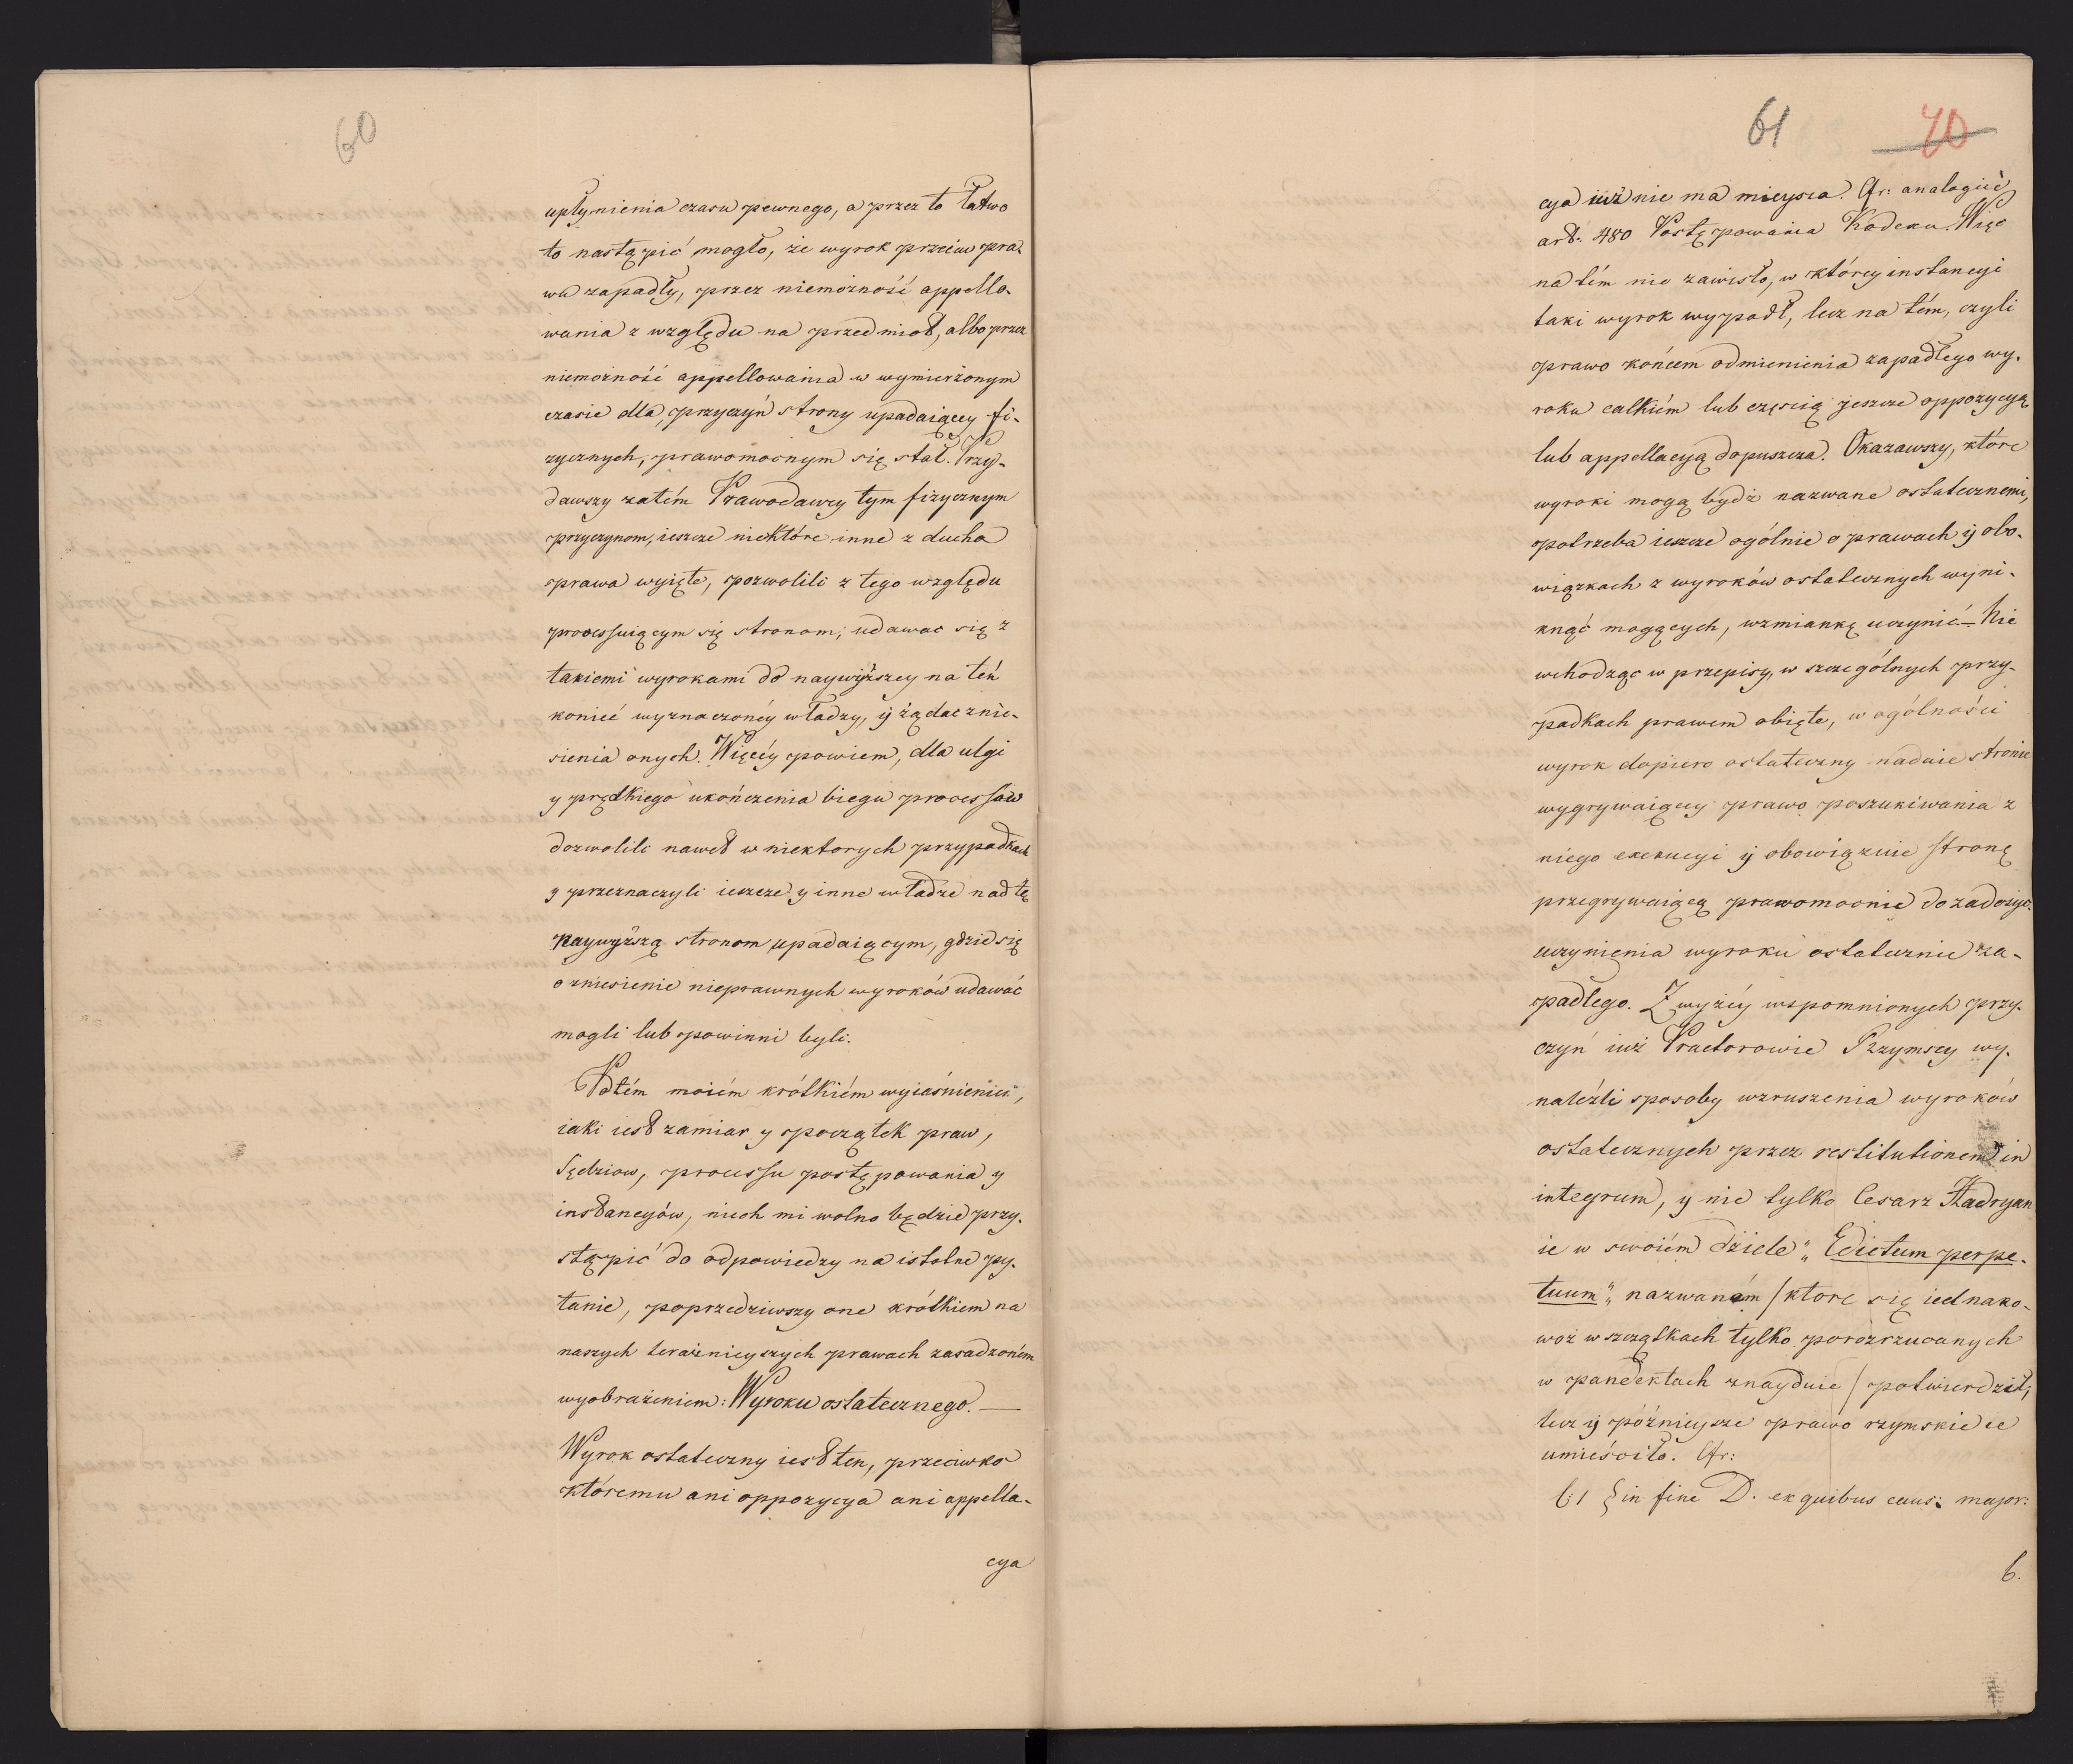 60
upłynienia czasu pewnego, a przez to łatwo
to nastąpić mogło, że wyrok przeciw pra-
wu zapadły, przez niemożność appello-
wania z względu na przedmiot, albo przez
niemożność appellowania w wymierzonym
czasie dla przyczyn strony upadaiącey fi-
zycznych, prawomocnym się stał. Przy-
dawszy zatém Prawodawcy tym fizycznym
przyczynom, ieszcze niektóre inne z ducha
prawa wyięte, pozwolili z tego względu
processuiącym się stronom, udawac się z
takiemi wyrokami do naywyższey na ten
koniec wyznaczonéy władzy, ÿ żądac znie-
sienia onych. Więcéy powiem, dla ulgi
y prędkiego ukończenia biegu processów
dozwolili nawet w niektorych przypadkach
y przeznaczyli ieszcze y inne władze nad tę
naywyższą stronom upadaiącym, gdzie się
o zniesienie nieprawnych wyroków udawać
mogli lub powinni byli.
Po tém moiém krótkiém wyiaśnieniu,
iaki iest zamiar y początek praw,
Sędziow, processu postępowania y
instancyów, niech mi wolno będzie przy-
stąpić do odpowiedzy na istotne py-
tanie, poprzedziwszy one krótkiem na
naszych teraznieyszych prawach zasadzoném
wyobrażeniem: Wyroku ostatecznego. —
Wyrok ostateczny iest ten, przeciwko
któremu ani oppozycya ani appella-
cya
61 70
cya iuż nie ma mieysca. Cfr: analogiće
art: 480 Postępowania Kodexu. Więc
na tém nie zawisło, w którey instancyi
taki wyrok wypadł, lecz na tém, czyli
prawo końcem odmienienia zapadłego wy-
roku całkiém lub częscią jeszcze oppozycyą
lub appellacyą dopuszcza. Okazawszy, które
wyroki mogą bydź nazwane ostatecznemi,
potrzeba ieszcze ogólnie o prawach ÿ obo-
wiązkach z wyroków ostatecznych wyni-
knąć mogących, wzmiankę uczynić — Nie
wchodząc w przepisy, w szczególnych przy-
padkach prawem obięte, w ogólności
wyrok dopiero ostateczny nadaie stronie
wygrywaiącey prawo poszukiwania z
niego exekucyi ÿ obowiązuie stronę
przegrywaiącą prawomocnie do zadosyc-
uczynienia wyroku ostatecznie za-
padłego. Z wyżéy wspomnionych przy-
czyn iuż Praetorowie Rzymscy wy-
naleźli sposoby wzruszenia wyroków
ostatecznych przez restitutionem in
integrum, y nie tylko Cesarz Hadryan
ie w swoiém dziele „Edictum perpe-
tuum" nazwaném / ktore się iednako-
woż w szczątkach tylko porozrzucanych
w pandektach znayduie / potwierdził,
lecz ÿ póżnieysze prawo rzymskie ie
umieściło. Cfr:
l: 1 § in fine D. ex quibus caus: major:
6.